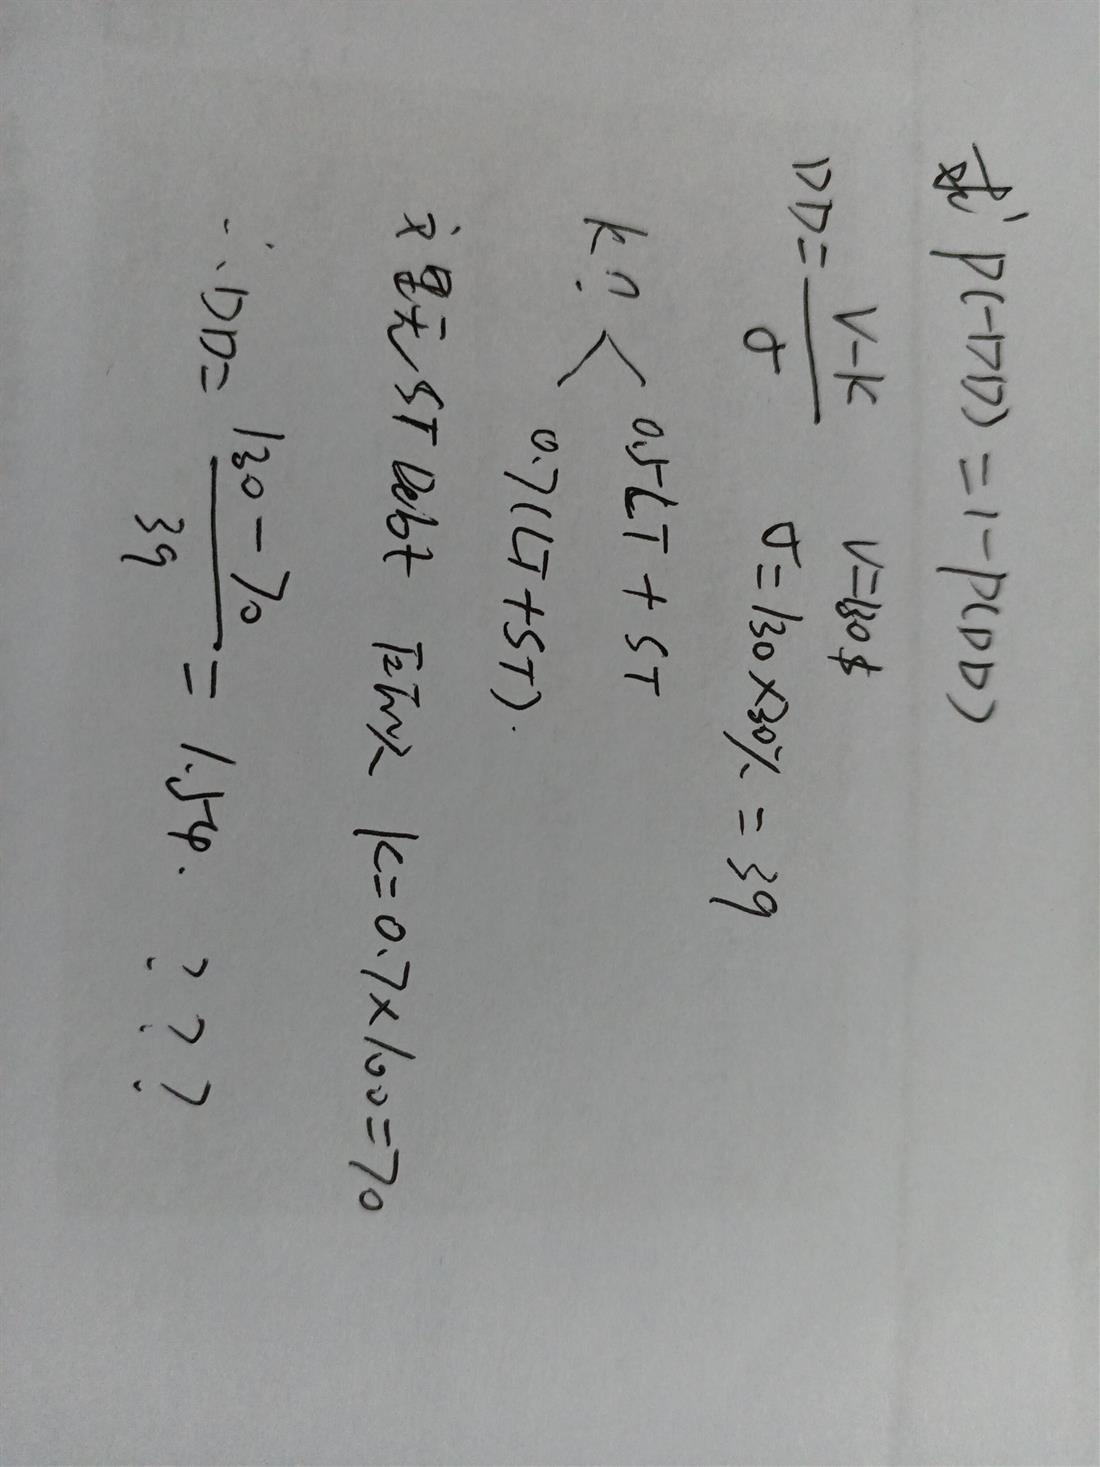 求 P(-DD) = 1-P(DD)
DD = V-K / σ V=130$ σ=130×30% = 39
K? < 0.5LT + ST
0.7(LT+ST).
这里无ST Debt 所以 K=0.7×100=70
∴ DD= 130-70 / 39 = 1.54. ???